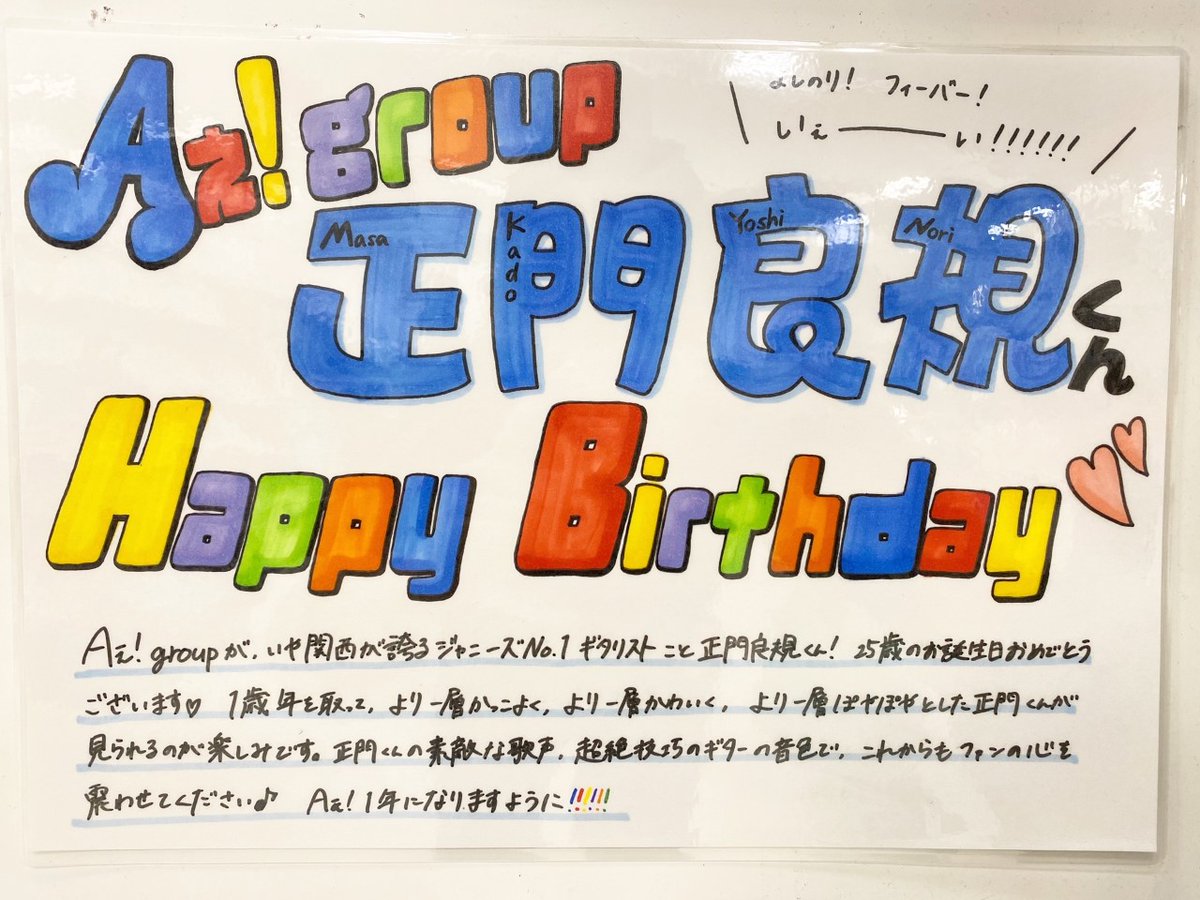 Aぇ! group
よしのり! フィーバー!
いぇーーい!!!!!!!
Masa Kado Yoshi Nori
正門良規くん
Happy Birthday
Aぇ! groupが、いや関西が誇るジャニーズNo.1ギタリストこと正門良規くん! 25歳のお誕生日おめでとう
ございます♡ 1歳年を取って、より一層かっこよく、より一層かわいく、より一層ぽやぽやとした正門くんが
見られるのが楽しみです。正門くんの素敵な歌声、超絶技巧のギターの音色で、これからもファンの心を
震わせてください♪ Aぇ! 1年になりますように!!!!!!